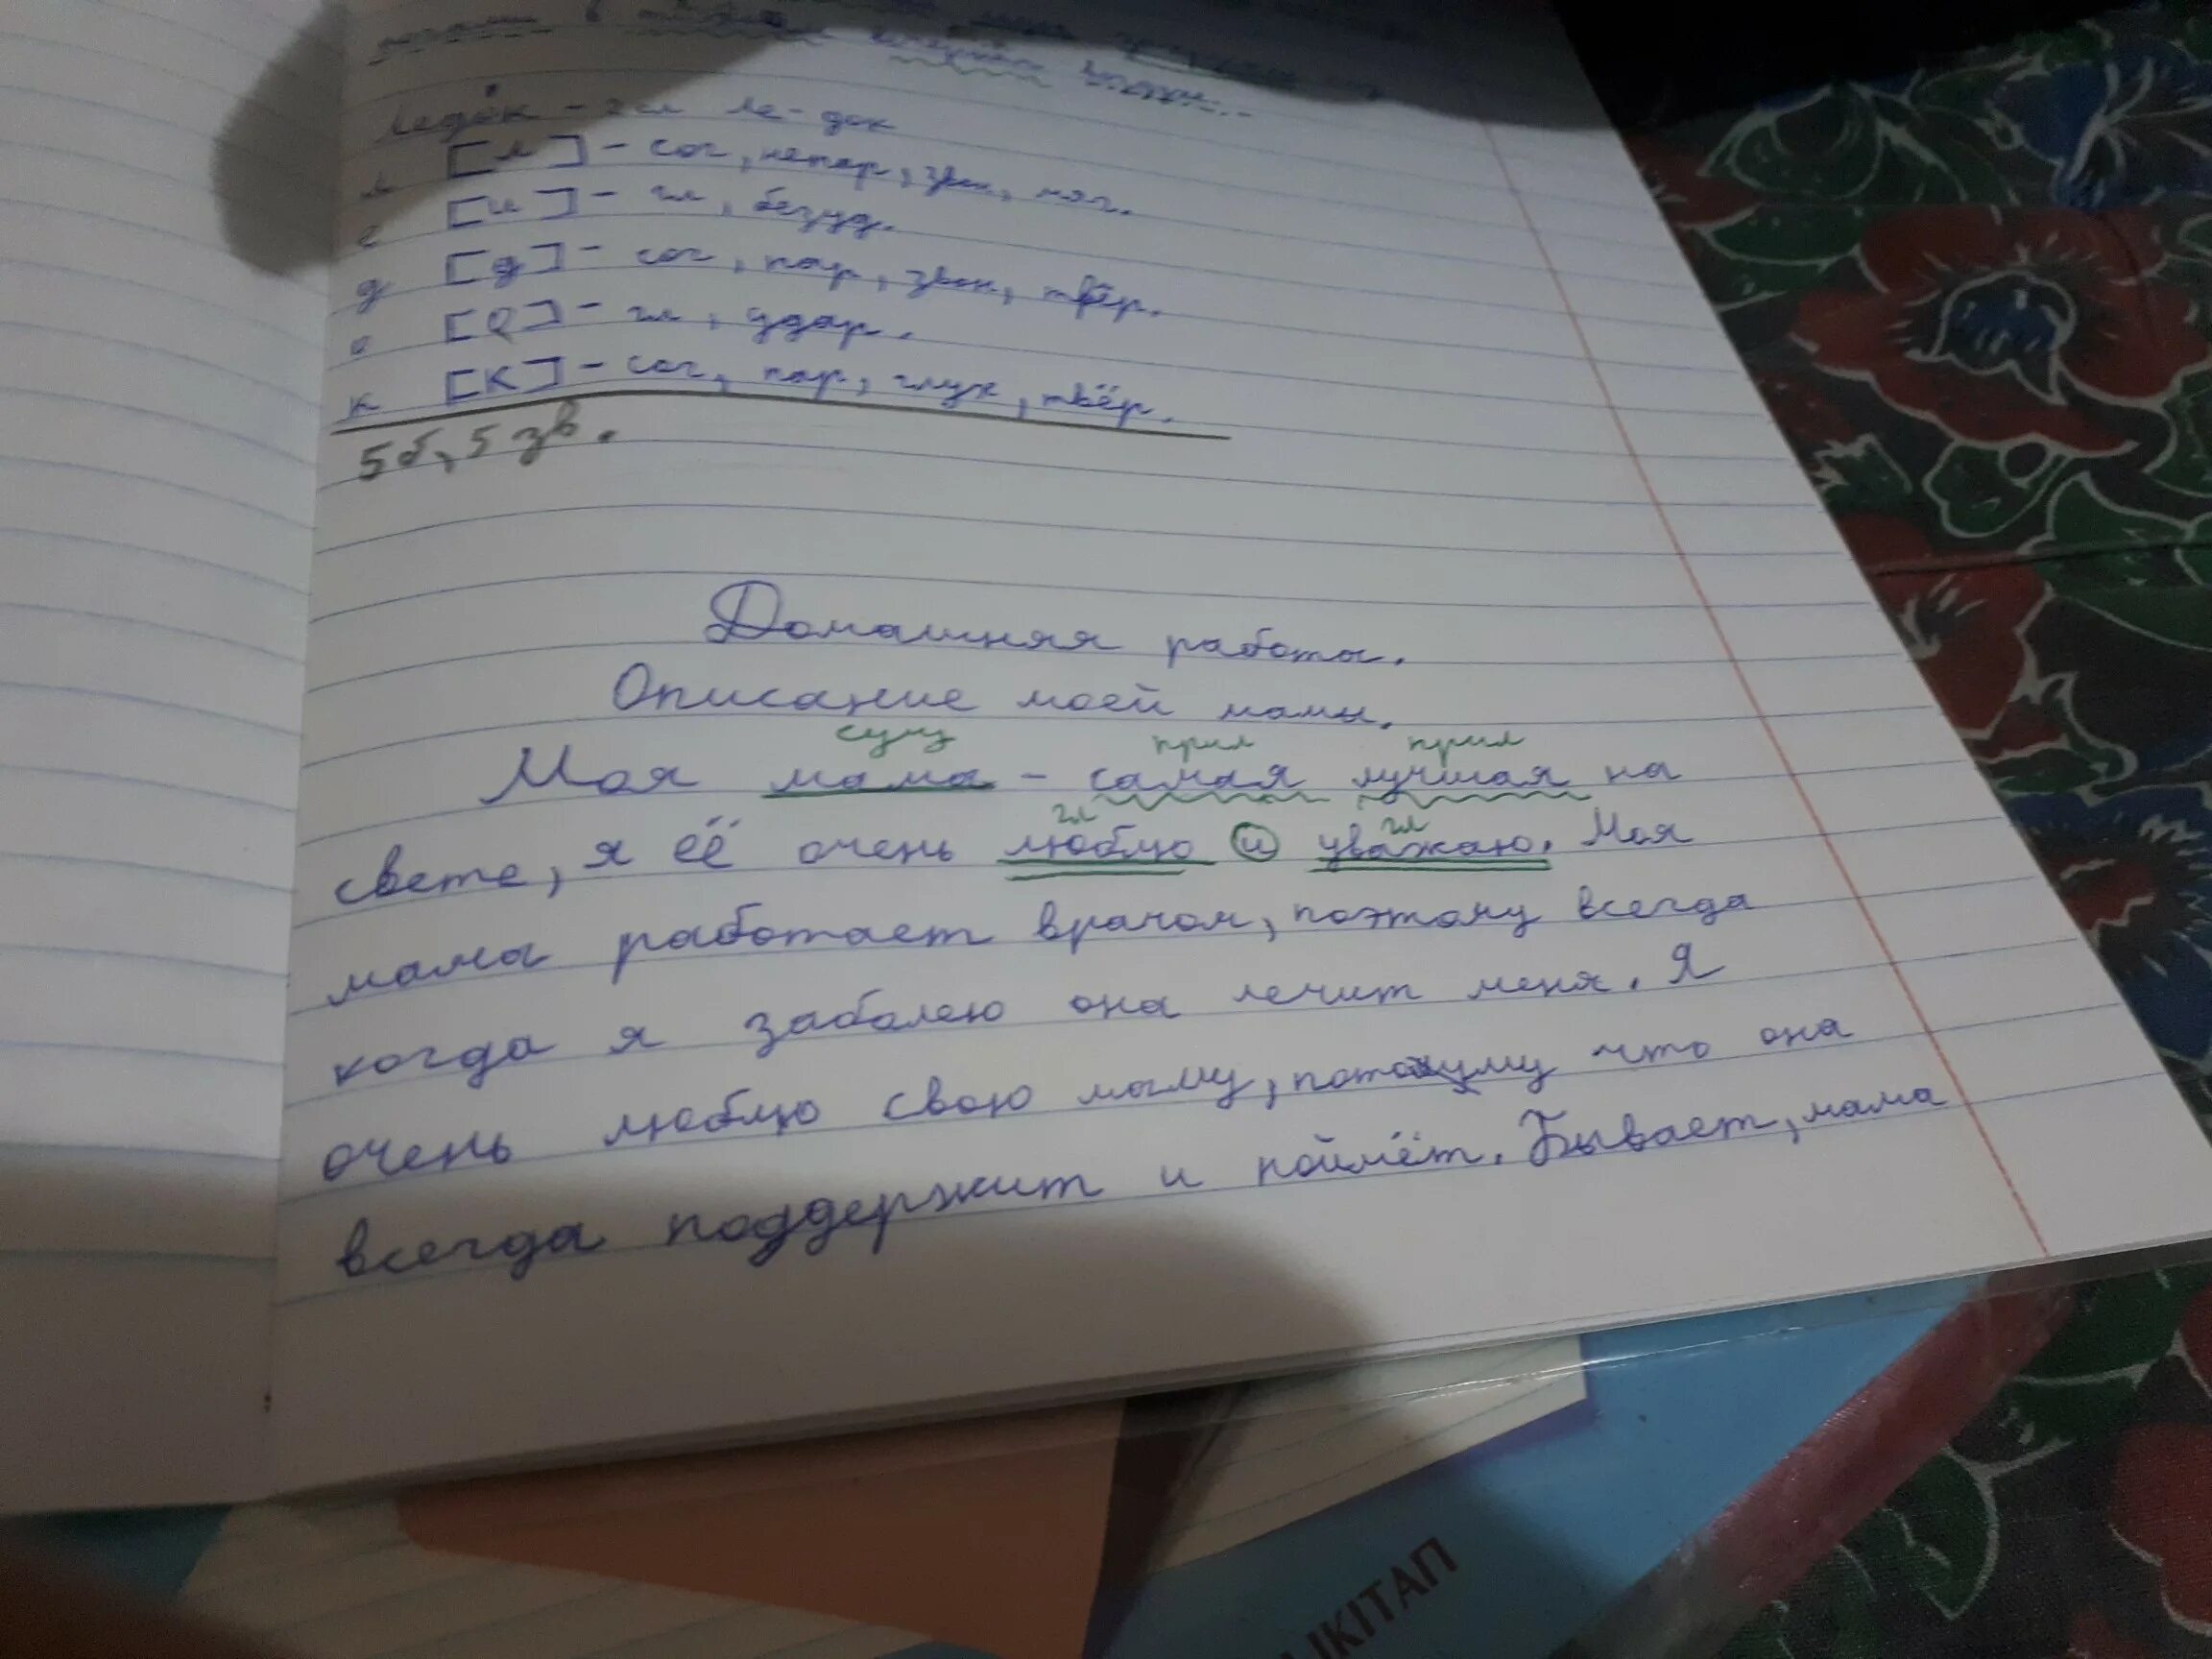 Ледок - 2 сл ле-док
л [л] - сог, непар, звон, мяг.
е [и] - гл, безуд.
д [д] - сог, пар, звон, твёр.
о [о] - гл, удар.
к [к] - сог, пар, глух, твёр.
5 б, 5 зв.
Домашняя работы.
Описание моей мамы.
сущ прил прил
Моя мама - самая лучшая на
гл гл
свете, я её очень люблю и уважаю. Моя
мама работает врачом, поэтому всегда
когда я заболею она лечит меня. Я
очень люблю свою маму, потому что она
всегда поддержит и поймёт. Бывает, мама
ЫКІТАП